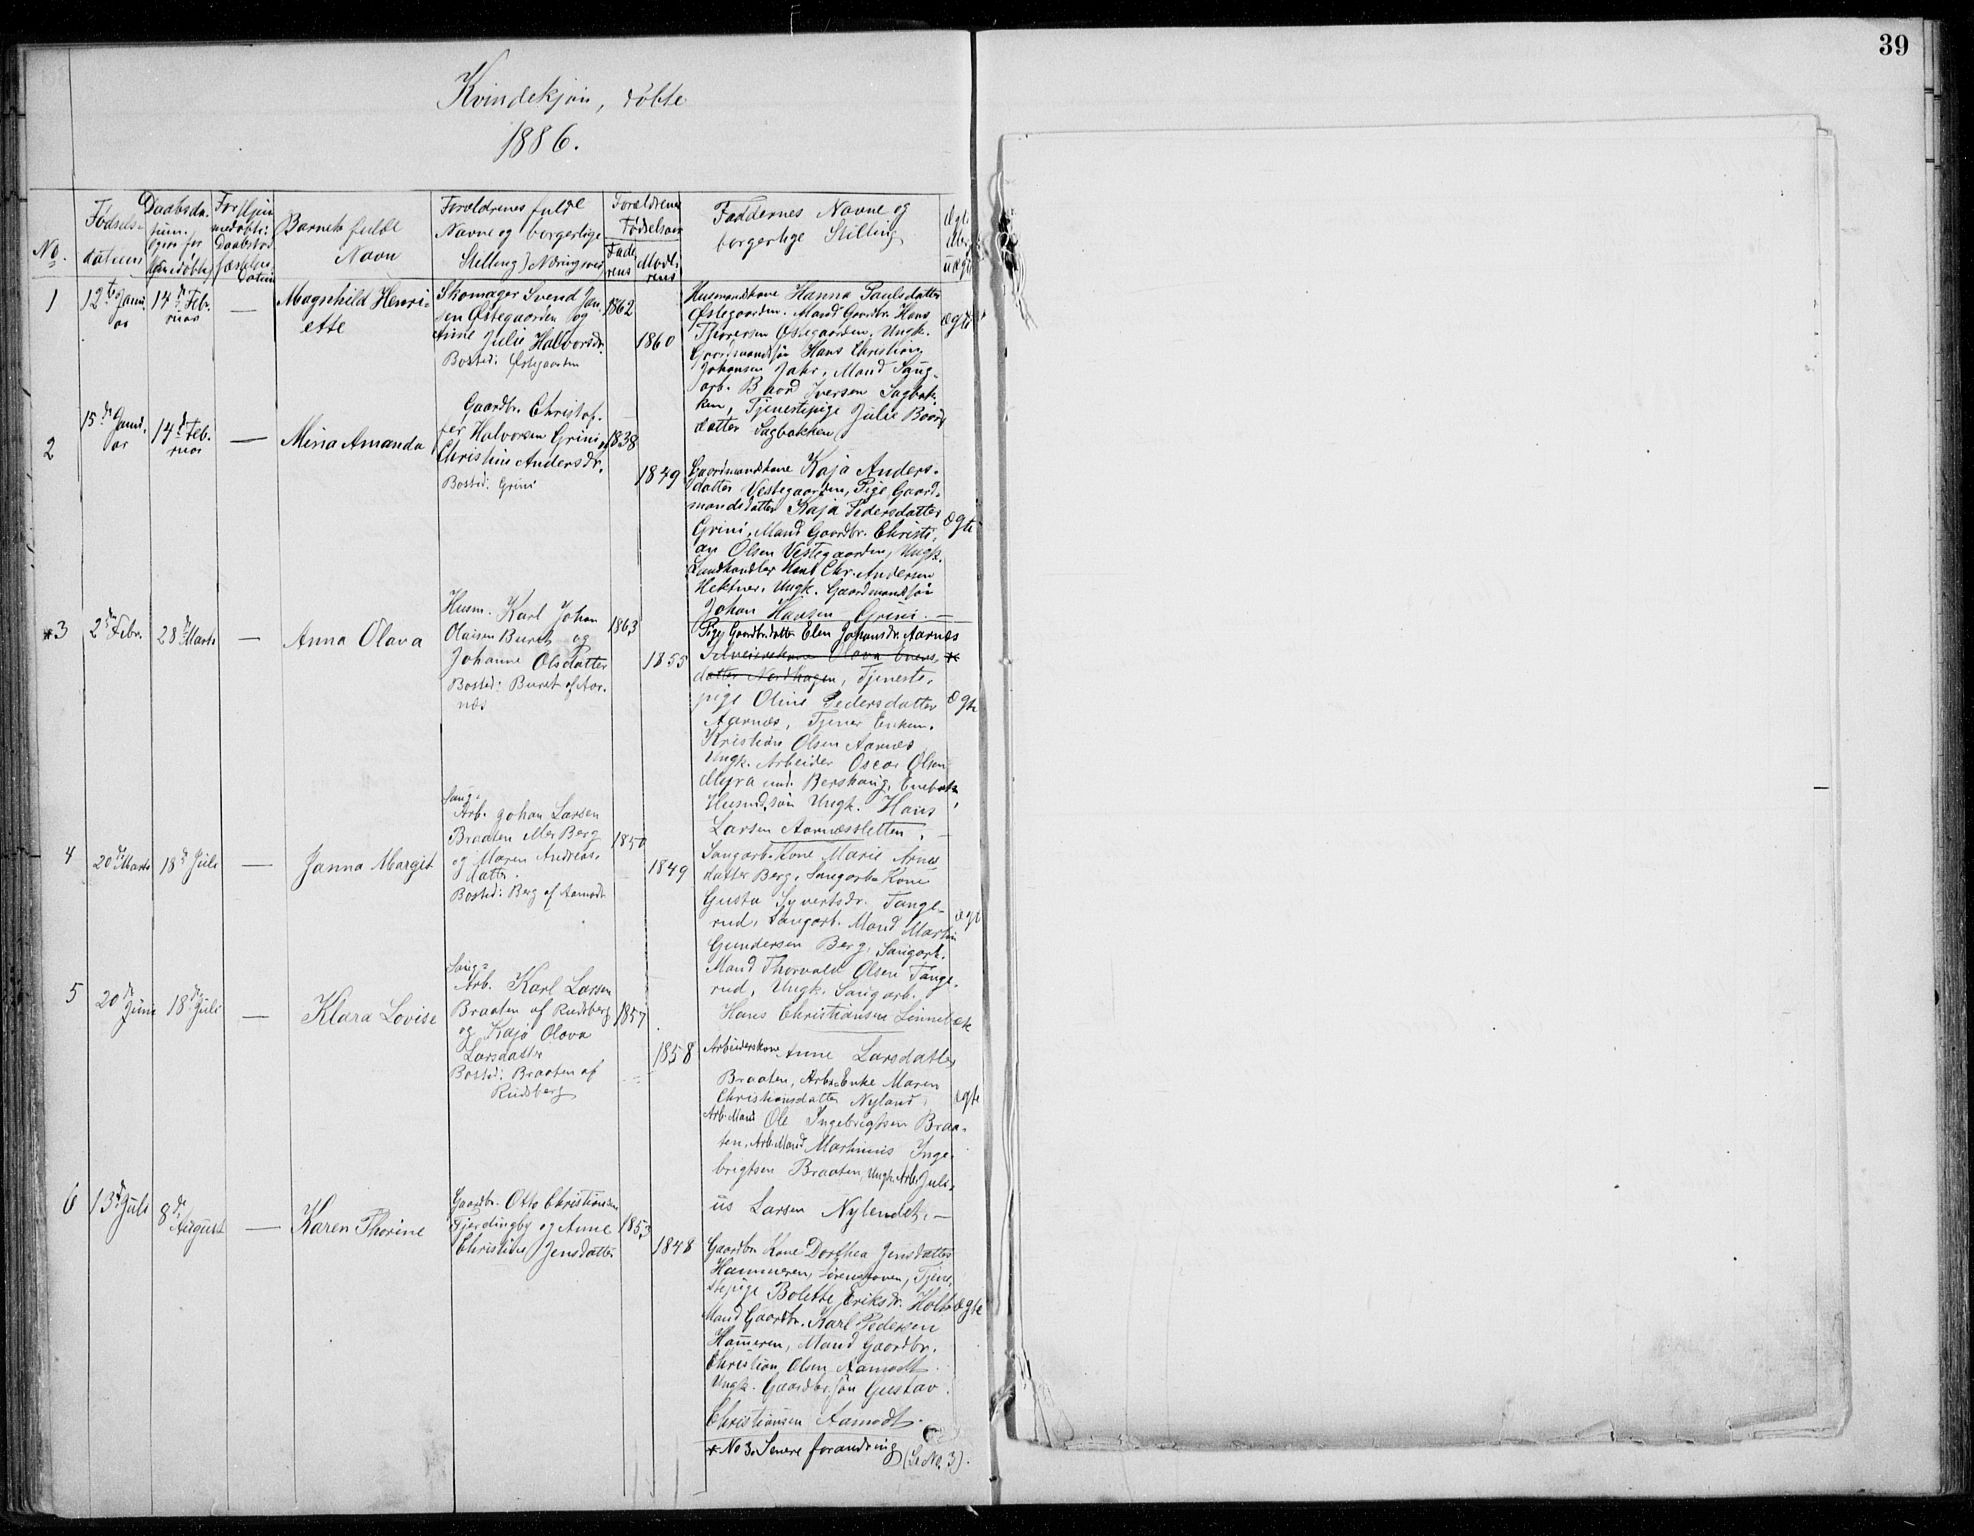 39
Kvindekjøn, døbte
1886.
No.
Fødsels-
datum
Daabsda-
tum,
ogsaa for
hjemmedøbte
For hjem
medøbte:
Daabstad
fæstelses
datum
Barnets fulde
Navn
Forældrenes fulde
Navne og borgerlige
Stilling (Næringsvei)
Forældrenes
Fødselsaar
Fade-
rens
Mode-
rens
Faddernes Navne og
borgerlige Stilling
Ægte
eller
uægte
1
12te Janu-
ar
14de Feb-
ruar
—
Magnhild Henri-
ette
Skomager Svend Jan-
sen Østegaarden og
Anne Julie Halvorsdr.
Bosted: Østegaarden
1862
1860
Husmandskone Hanna Paulsdatter
Østegaarden. Mand Gaardbr. Hans
Thoresen Østegaarden, Ungk.
Gaardmandssøn Hans Christian
Johansen Jahr, Mand Saug-
arb. Baard Iversen Sagbak-
ken, Tjenestepige Julie Baards
datter Sagbakken
ægte
2
15de Janu-
ar
14de Feb-
ruar
—
Mina Amanda
Gaardbr. Christof-
fer Halvorsen Grini og
Christine Andersdr.
Bosted: Grini
1838
1849
Gaardmandskone Kaja Anders-
datter Vestegaarden, Pige Gaard-
mandsdatter Kaja Pedersdatter
Grini, Mand Gaardbr. Christi-
an Olsen Vestegaarden, Ungk.
Landhandler Hans Chr. Andersen
Hektner, Ungk. Gaardmandssøn
Johan Hansen Grini. —
Ægte
*3
2den Febr.
28de Marts
—
Anna Olava
Husm. Karl Johan
Olaisen Buret og
Johanne Olsdatter
Bosted: Buret af Aar-
næs
1863
1855
Pige Gaardbr.datter Elen Johansdr. Aarnæs
Selveierskone Olava Evens- *
datter Nordhagen, Tjeneste-
pige Oline Pedersdatter
Aarnæs, Tjener Enkem.
Kristian Olsen Aarnæs,
Ungk. Arbeider Oscar Olsen
Myra und. Bershaug, Enebak,
Husmdssøn Ungk. Hans
Larsen Aarnæssletten. —
Ægte
4
20de Marts
18de Juli
—
Janna Margit
Saug-
Arb. Johan Larsen
Braaten Mer Berg
og Maren Andreas-
datter.
Bosted: Berg af Aamodt
1850
1849
Saugarb. Kone Marie Arnes
datter Berg, Saugarb. Kone
Gusta Syvertsdr. Tange-
rud, Saugarb. Mand Martin
Gundersen Berg, Saugarb.
Mand Thorvald Olsen Tange-
rud, Ungk. Saugarb.
Hans Christiansen Linnebæk
ægte
5
20de Juni
18de Juli
—
Klara Lovise
Saug-
Arb. Karl Larsen
Braaten af Rudsberg
og Kaja Olava
Larsdatter
Bosted: Braaten af
Rudsberg
1857
1858
Arbeiderskone Anne Larsdatter
Braaten, Arb. Enke Maren
Christiansdatter Nyland,
Arb. Mand Ole Ingebrigtsen Braa-
ten, Arb. Mand Martinius Inge-
brigtsen Braaten, Ungk. Arb. Juli-
us Larsen Nylendet. —
ægte
6
13de Juli
8de August
—
Karen Thorine
Gaardbr. Otto Christiansen
Fjerdingby og Anne
Christine Jensdatter
1853
1848
Gaardbr. Kone Dorthea Jensdatter
Hammeren, Sørenskoven, Tjene-
stepige Bolette Eriksdr. Holt
Mand Gaardbr. Karl Pedersen
Hameren, Mand Gaardbr.
Christian Olsen Aamodt
Ungk. Gaardbr.søn Gustav
Christiansen Aamodt.
ægte
* No 3. Senere forandring (Se No. 3).